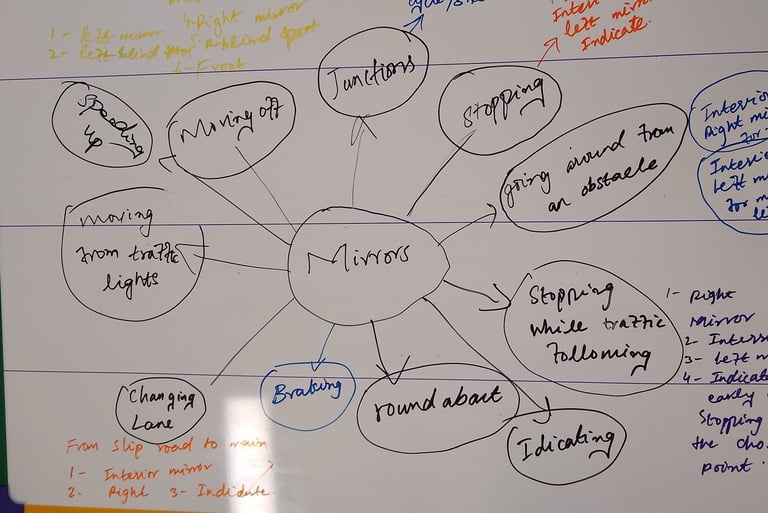 1- left mirror
2- left blind spot
4- Right mirror
5- R-blind sport
6- Front
Junctions
Interi
left mirr
Indicate.
Speeding
up
Moving off
Stopping
Interio
Right mi
Interio
Left m
for m
le
going around from
an obstacle
moving
from traffic
lights
Mirrors
Stopping
while traffic
following
1- Right
mirror
2- Interi
3- Left m
4- Indicate
early
Stopping
the cho.
point.
Changing
Lane
Braking
roundabout
Idicating
From slip road to main
1- Interior mirror
2. Right 3- Indidate.